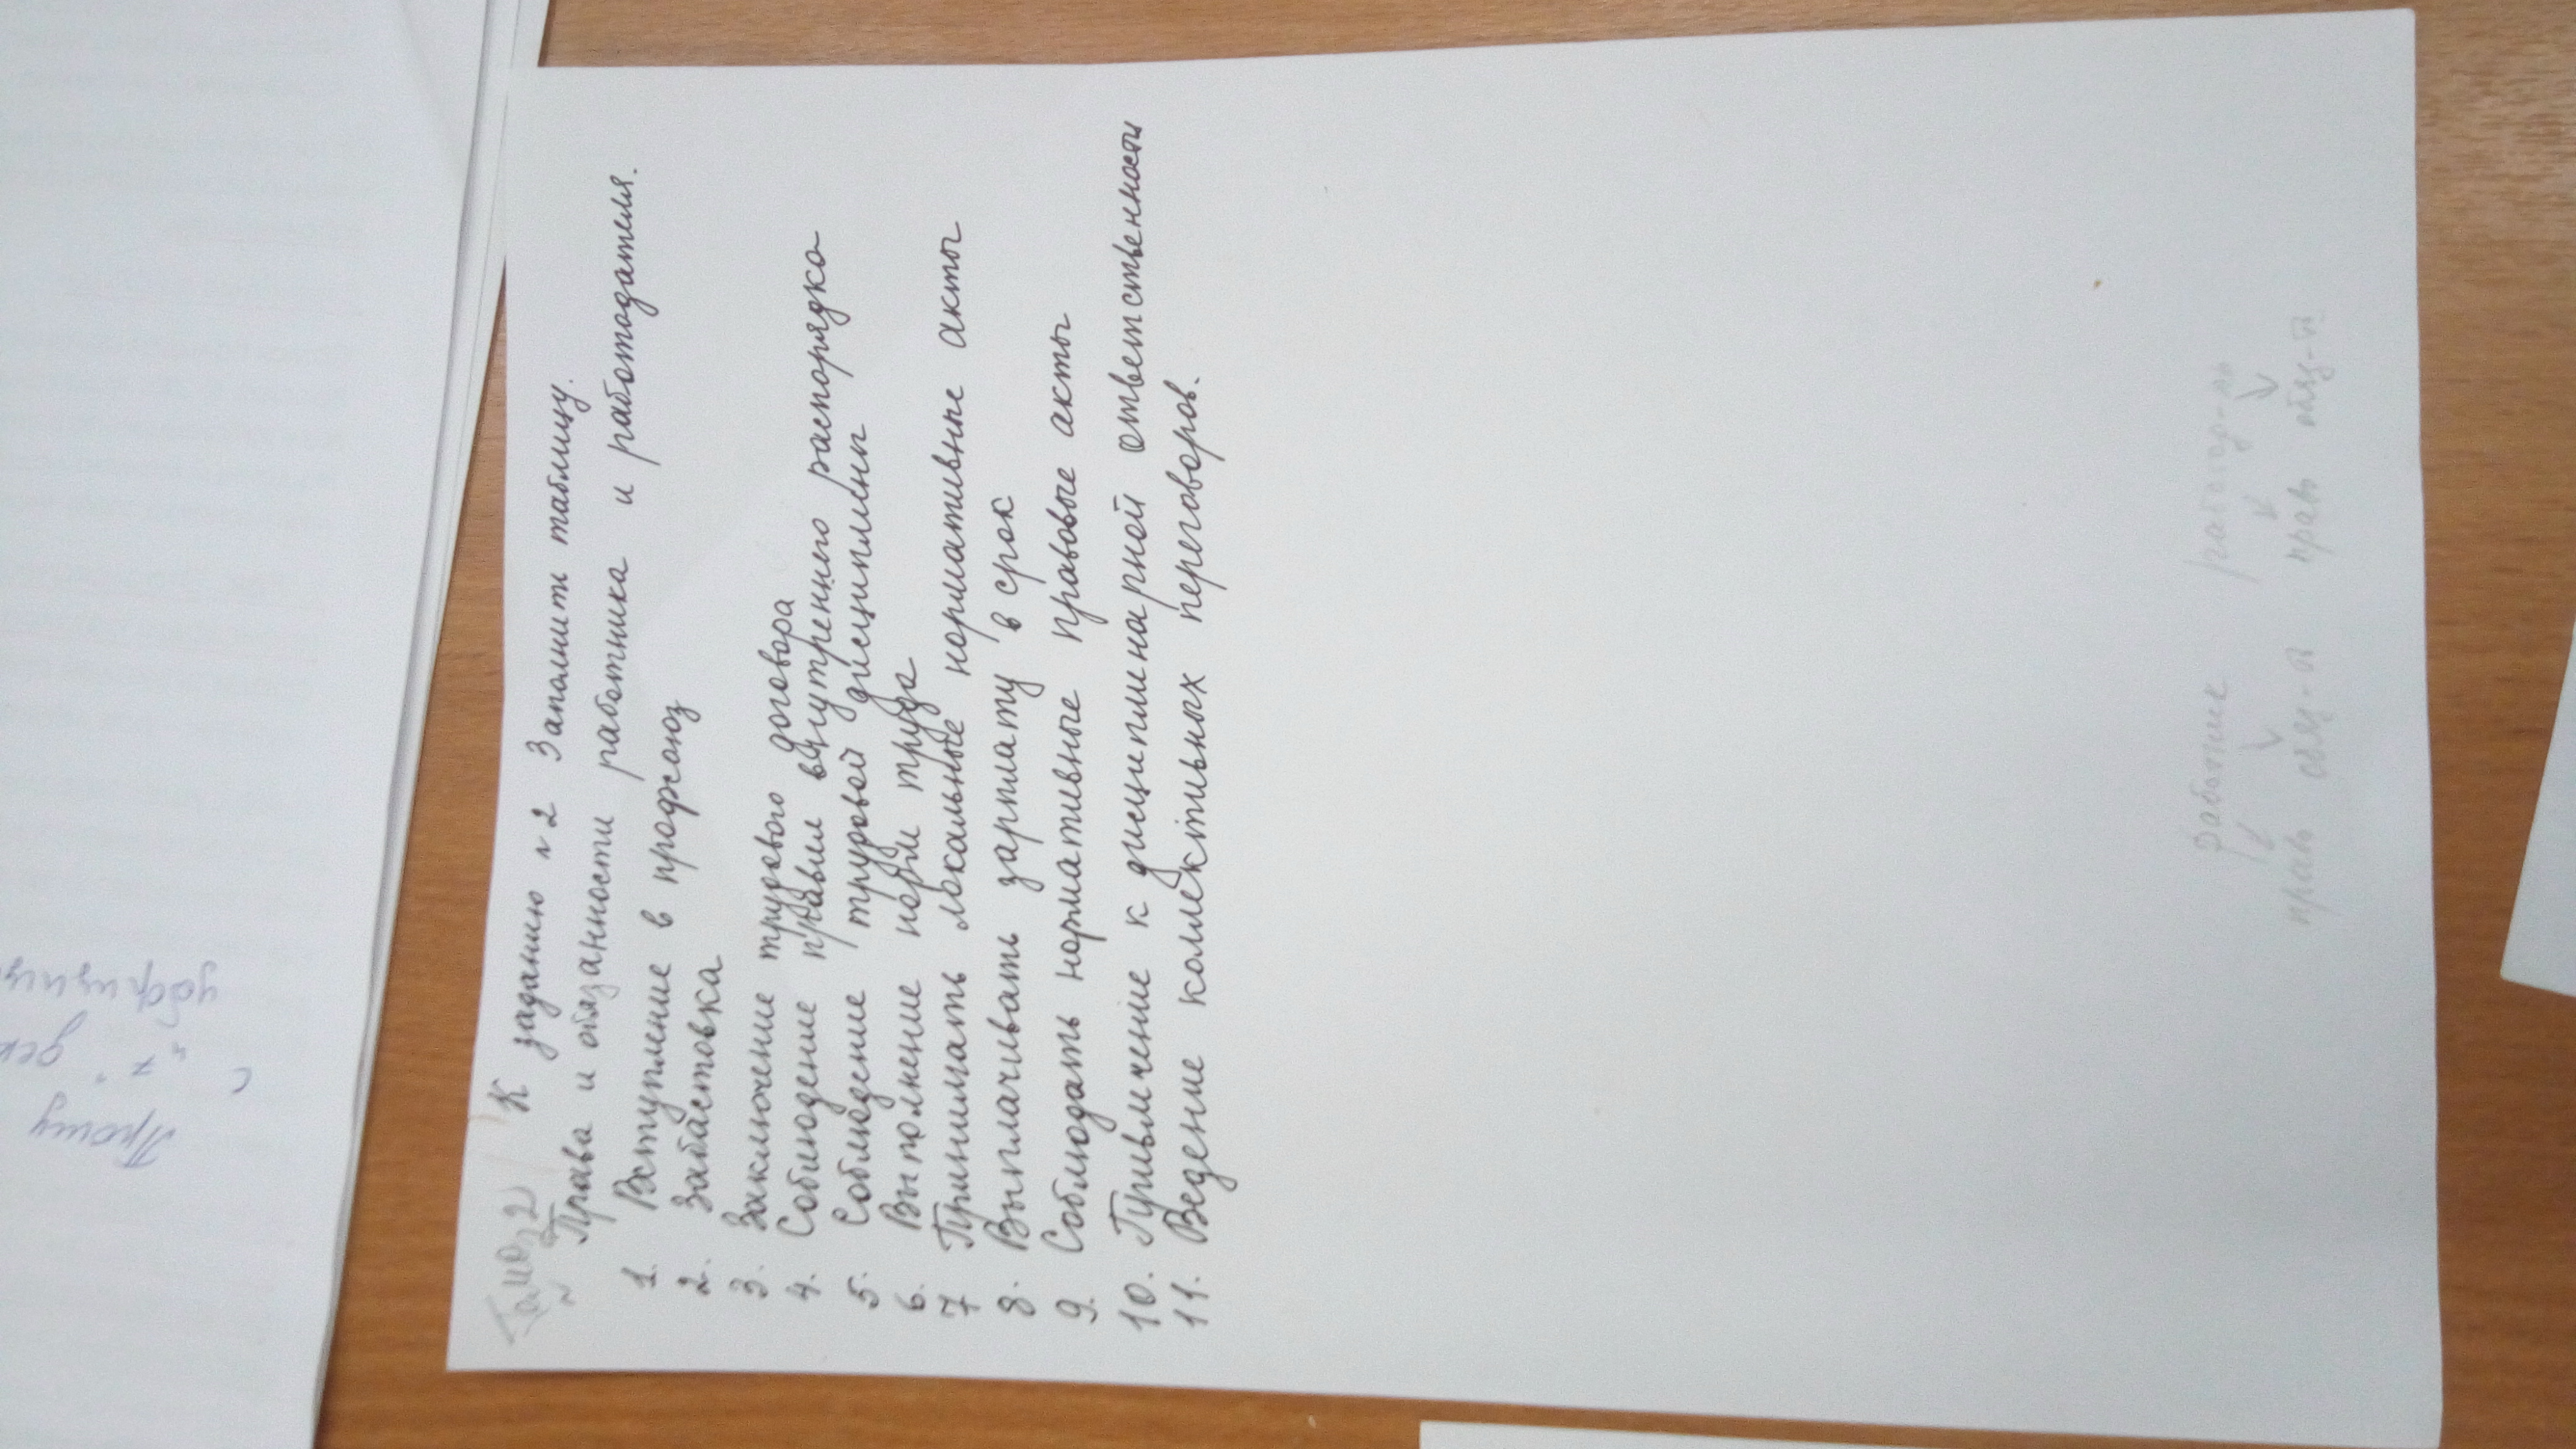 К заданию № 2 Заполнит таблицу.
Права и обязанности работника и работодателя.
1. Вступление в профсоюз
2. Забастовка
3. Заключение трудового договора
4. Соблюдение правил внутреннего распорядка
5. Соблюдение трудовой дисциплины
6. Выполнение норм труда
7 Принимать локальные нормативные акты
8. Выплачивать зарплату в срок
9. Соблюдать нормативные правовые акты
10. Привлечение к дисциплинарной ответственности
11. Ведение коллективных переговоров.
работник работод-ль
право обяз-ти право обяз-ти
Прошу
с "7"